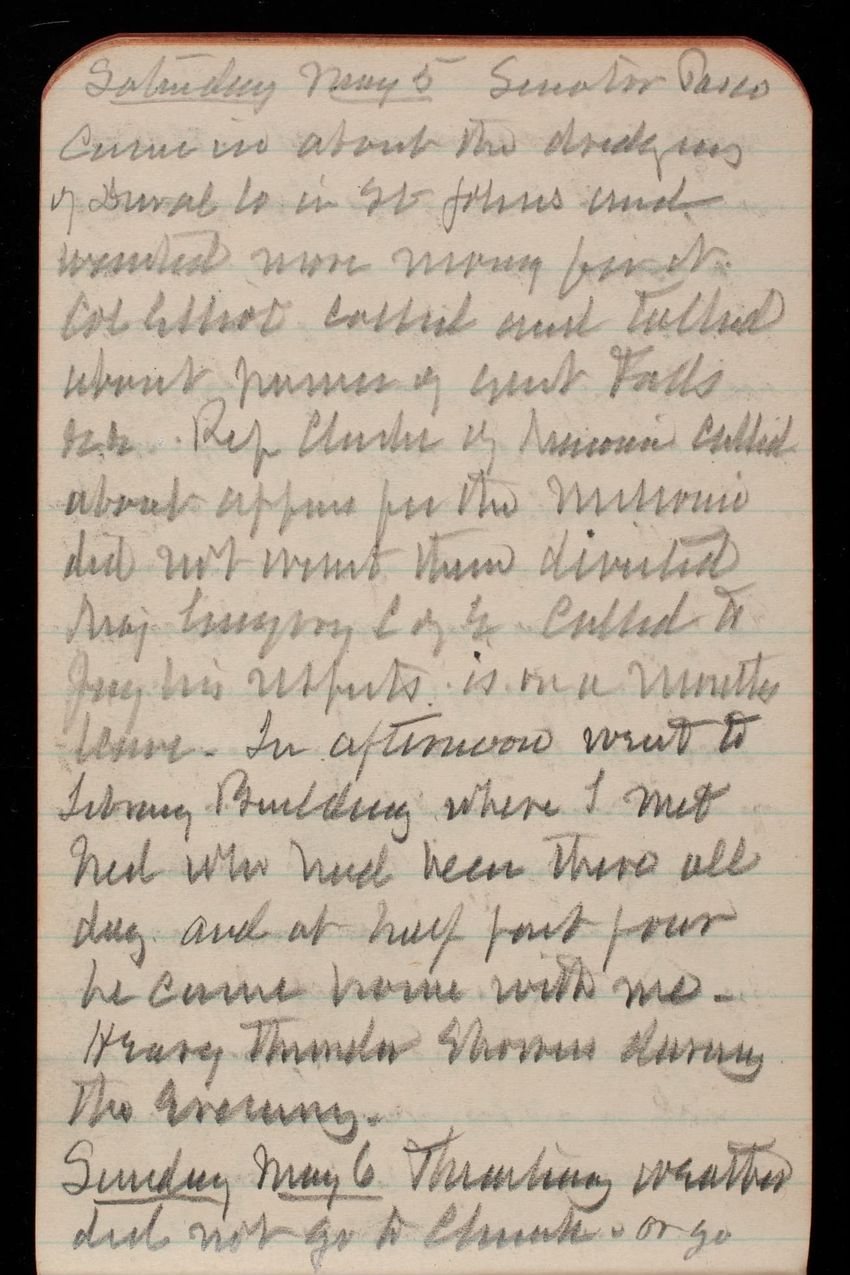 Saturday May 5 Senator Pasco
came in about the dredging
of Duval Co in St Johns and
wanted more money for it.
Col Elliot called and talked
about names of Great Falls
Rep Clarke of Missouri called
about approp for the Missouri
did not want them divided
Maj C of E. Called to
pay his respects. is on a months
leave. In afternoon went to
Library Building where I met
Ned who had been there all
day. and at half past four
he came home with me.
Heavy Thunder Showers during
the Evening.
Sunday May 6 Threatening weather
did not go to Church. or go